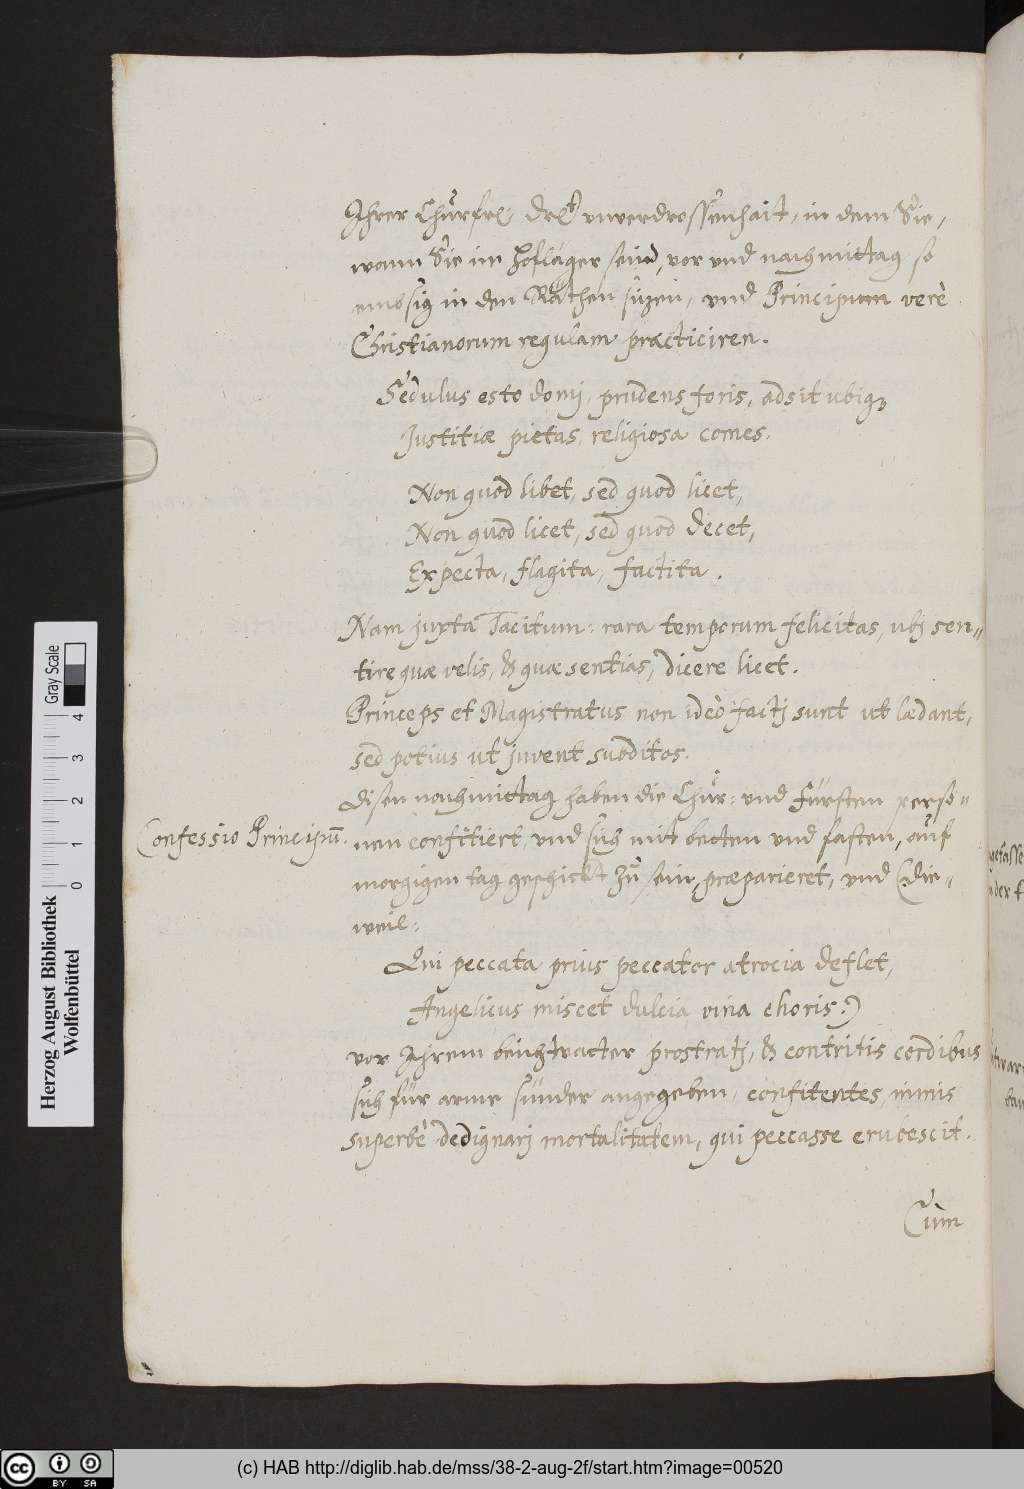 Ihrer Churfrl: Drlt unverdrossenhait, in dem Sie,
wann Sie im Hofläger seind, vor und nachmittag so
embsig in den Räthen sizen, und Principum verè
Christianorum regulam practiciren.
Sedulus esto domj, prudens foris, adsit ubiqz
Justitiæ pietas, religiosa comes.
Non quod libet, sed quod licet,
Non quod licet, sed quod decet,
Expecta, flagita, factita.
Nam juxta Tacitum: rara temporum felicitas, ubj sen=
tire quæ velis, & quæ sentias, dicere licet.
Princeps et Magistratus non ideò factj sunt ut lædant,
sed potius ut juvent subditos.
Disen nachmittag haben die Chur: und Fürsten perso=
Confessio Principū.
nen confitiert, und sich mit betten und fasten, auf
morgigen tag geschickt zu sein, præparieret, und (die=
weil:
Qui peccata prius peccator atrocia deflet,
Angelicus miscet dulcia vina choris:)
vor Ihrem beichtvatter prostratj, & contritis cordibus
sich für arme sünder angegeben, confitentes, nimis
superbè dedignarj mortalitatem, qui peccasse erubescit.
Cùm
Herzog August Bibliothek
Wolfenbüttel
Gray Scale
0 1 2 3 4
cc BY SA
(c) HAB http://diglib.hab.de/mss/38-2-aug-2f/start.htm?image=00520